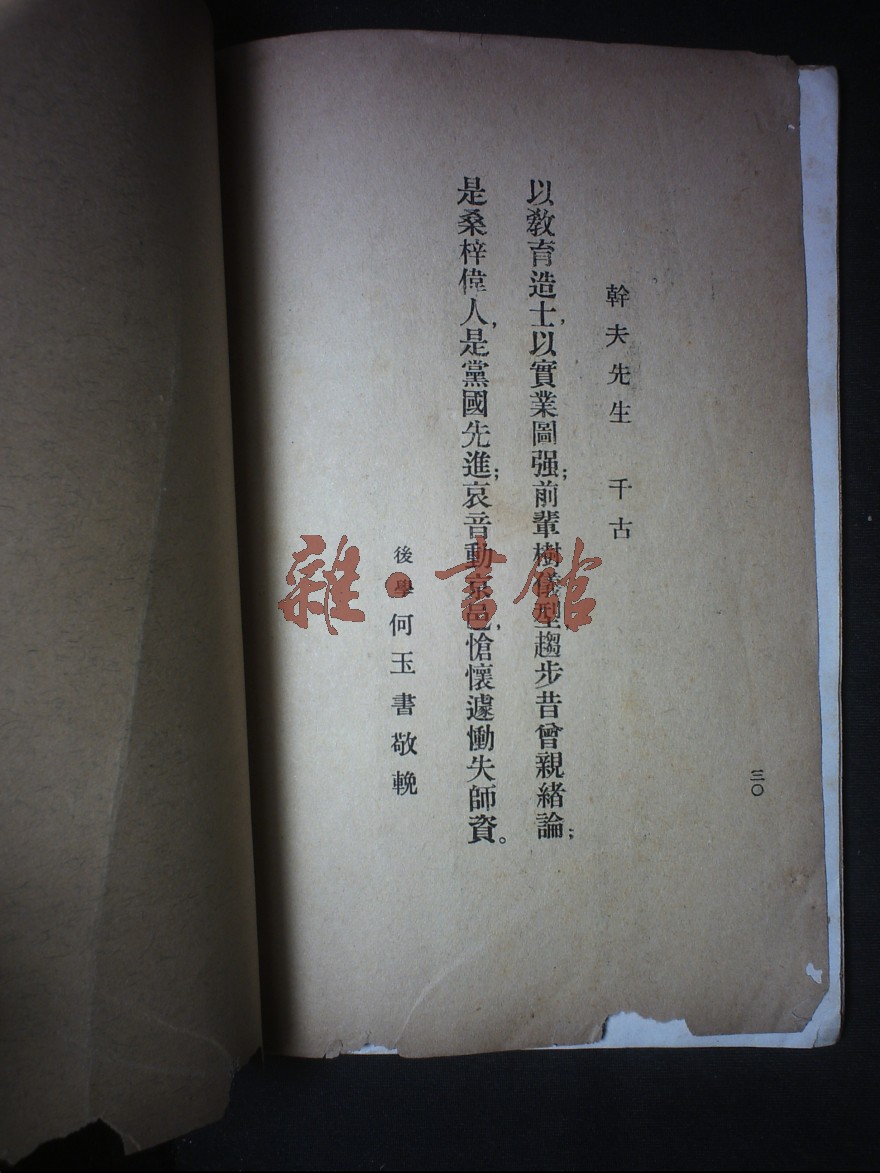 三〇
幹夫先生　千古
以教育造士,以實業圖强;前輩樹儀型,趨步昔曾親緒論;
是桑梓偉人,是黨國先進;哀音動京邑,愴懷遽慟失師資。
後學何玉書敬輓
雜·書館